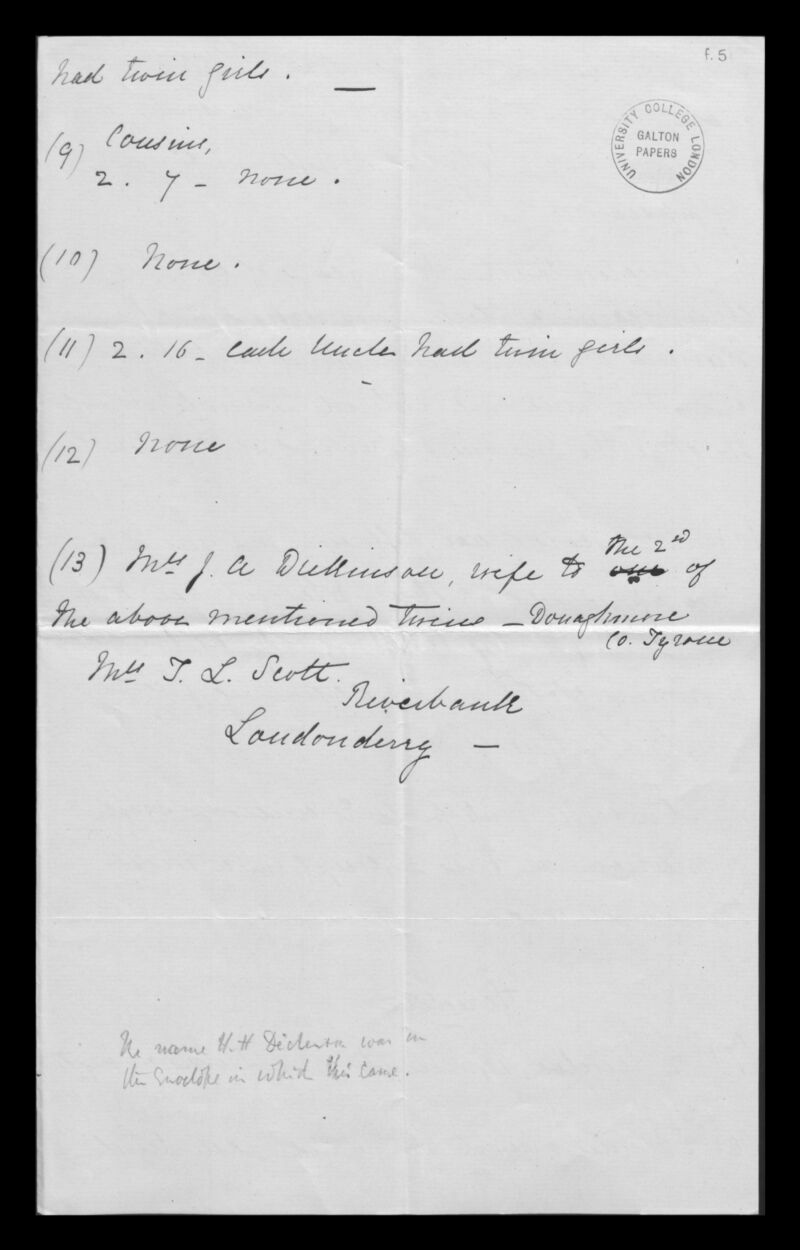 F.5
had twin girls. —
UNIVERSITY COLLEGE LONDON
GALTON
PAPERS
(9) Cousins,
2. 7 - none.
(10) None.
(11) 2. 16 - each Uncle had twin girls.
(12) None
(13) Mrs J. A Dickinson, wife to one the 2nd of
the above mentioned twins - Donaghmore
Co. Tyrone
Mrs T. L. Scott.
Riverbank
Londonderry -
The name H. H Dickinson was on
the envelope in which this came.